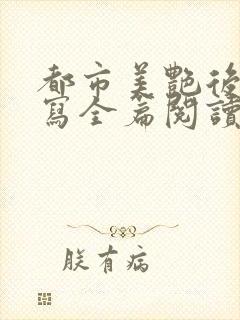 都市美艷後
寫全篇閱讀
朕有病